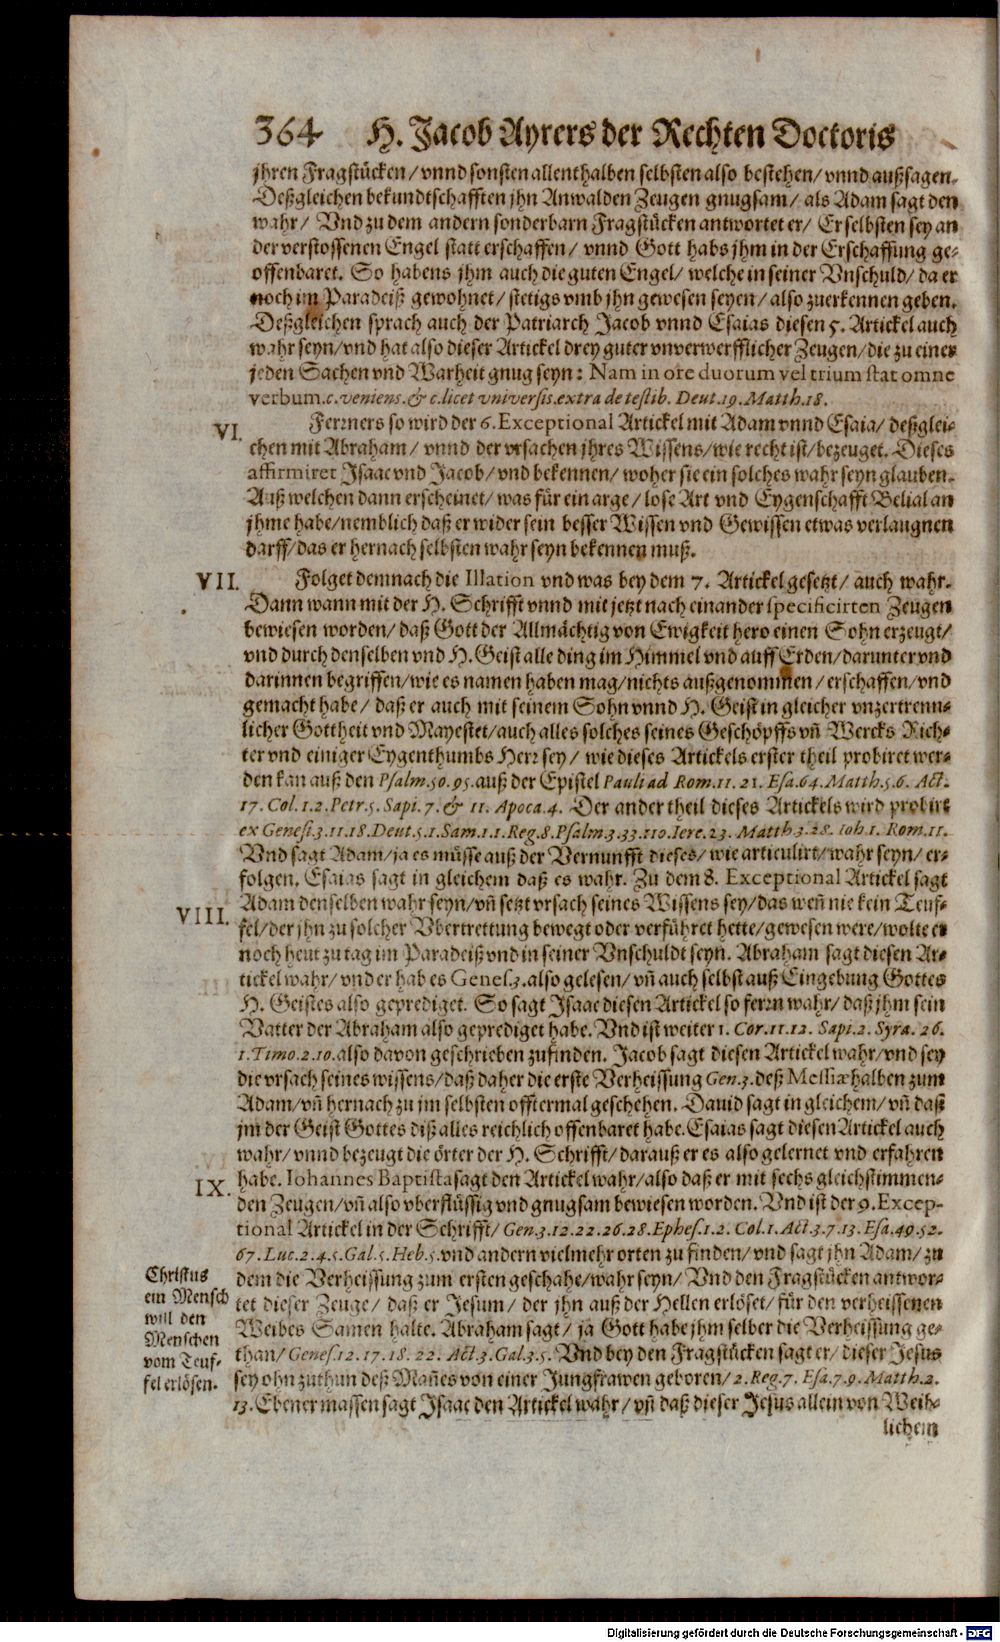 364 H. Jacob Ayrers der Rechten Doctoris
jhren Fragstücken/ vnnd sonsten allenthalben selbsten also bestehen/ vnnd außsagen.
Deßgleichen bekundtschafften jhn Anwalden Zeugen gnugsam/ als Adam sagt den
wahr/ Vnd zu dem andern sonderbarn Fragstücken antwortet er/ Er selbsten sey an
der verstossenen Engel statt erschaffen/ vnnd Gott habs jhm in der Erschaffung ge-
offenbaret. So habens jhm auch die guten Engel/ welche in seiner Vnschuld/ da er
noch im Paradeiß gewohnet/ stetigs vmb jhn gewesen seyen/ also zuerkennen geben.
Deßgleichen sprach auch der Patriarch Jacob vnnd Esaias diesen 5. Artickel auch
wahr seyn/ vnd hat also dieser Artickel drey guter vnverwerfflicher Zeugen/ die zu einer
jeden Sachen vnd Warheit gnug seyn: Nam in ore duorum vel trium stat omne
verbum. c. veniens. & c. licet vniversis. extra de testib. Deut. 19. Matth. 18.
VI. Ferrners so wird der 6. Exceptional Artickel mit Adam vnnd Esaia/ deßglei-
chen mit Abraham/ vnnd der vrsachen jhres Wissens/ wie recht ist/ bezeuget. Dieses
affirmiret Isaac vnd Jacob/ vnd bekennen/ woher sie ein solches wahr seyn glauben.
Auß welchen dann erscheinet/ was für ein arge/ lose Art vnd Eygenschafft Belial an
jhme habe/ nemblich daß er wider sein besser Wissen vnd Gewissen etwas verlaugnen
darff/ das er hernach selbsten wahr seyn bekennen muß.
VII. Folget demnach die Illation vnd was bey dem 7. Artickel gesetzt/ auch wahr.
Dann wann mit der H. Schrifft vnnd mit jetzt nach einander specificirten Zeugen
bewiesen worden/ daß Gott der Allmächtig von Ewigkeit hero einen Sohn erzeugt/
vnd durch denselben vnd H. Geist alle ding im Himmel vnd auff Erden/ darunter vnd
darinnen begriffen/ wie es namen haben mag/ nichts außgenommen/ erschaffen/ vnd
gemacht habe/ daß er auch mit seinem Sohn vnnd H. Geist in gleicher vnzertrenn-
licher Gottheit vnd Mayestet/ auch alles solches seines Geschöpffs vñ Wercks Rich-
ter vnd einiger Eygenthumbs Herr sey/ wie dieses Artickels erster theil probiret wer-
den kan auß den Psalm. 50. 95. auß der Epistel Pauli ad Rom. 11. 21. Esa. 64. Matth. 5. 6. Act.
17. Col. 1. 2. Petr. 5. Sapi. 7. & 11. Apoca. 4. Der ander theil dieses Artickels wird probirt
ex Genesi. 3. 11. 18. Deut. 5. 1. Sam. 1. 1. Reg. 8. Psalm. 3. 33. 110. Iere. 23. Matth. 3. 28. Ioh. 1. Rom. 11.
Vnd sagt Adam/ ja es müsse auß der Vernunfft dieses/ wie articulirt/ wahr seyn/ er-
folgen. Esaias sagt in gleichem daß es wahr. Zu dem 8. Exceptional Artickel sagt
VIII. Adam denselben wahr seyn/ vñ setzt vrsach seines Wissens sey/ das weñ nie kein Teuf-
fel/ der jhn zu solcher Vbertrettung bewegt oder verführet hette/ gewesen were/ wolte er
noch heut zu tag im Paradeiß vnd in seiner Vnschuldt seyn. Abraham sagt diesen Ar-
tickel wahr/ vnd er hab es Genes. 3. also gelesen/ vñ auch selbst auß Eingebung Gottes
H. Geistes also geprediget. So sagt Isaac diesen Artickel so ferrn wahr/ daß jhm sein
Vatter der Abraham also geprediget habe. Vnd ist weiter 1. Cor. 11. 12. Sapi. 2. Syra. 26.
1. Timo. 2. 10. also davon geschrieben zufinden. Jacob sagt diesen Artickel wahr/ vnd sey
die vrsach seines wissens/ daß daher die erste Verheissung Gen. 3. deß Messiæ halben zum
Adam/ vñ hernach zu jm selbsten offtermal geschehen. Dauid sagt in gleichem/ vñ daß
jm der Geist Gottes diß alles reichlich offenbaret habe. Esaias sagt diesen Artickel auch
wahr/ vnnd bezeugt die örter der H. Schrifft/ darauß er es also gelernet vnd erfahren
IX. habe. Iohannes Baptista sagt den Artickel wahr/ also daß er mit sechs gleichstimmen-
den Zeugen/ vñ also vberflüssig vnd gnugsam bewiesen worden. Vnd ist der 9. Excep-
tional Artickel in der Schrifft/ Gen. 3. 12. 22. 26. 28. Ephes. 1. 2. Col. 1. Act. 3. 7. 13. Esa. 49. 52.
67. Luc. 2. 4. 5. Gal. 5. Heb. 5. vnd andern vielmehr orten zu finden/ vnd sagt jhn Adam/ zu
dem die Verheissung zum ersten geschahe/ wahr seyn/ Vnd den Fragstücken antwor-
tet dieser Zeuge/ daß er Jesum/ der jhn auß der Hellen erlöset/ für den verheissenen
Weibes Samen halte. Abraham sagt/ ja Gott habe jhm selber die Verheissung ge-
than/ Genes. 12. 17. 18. 22. Act. 3. Gal. 3. 5. Vnd bey den Fragstücken sagt er/ dieser Jesus
sey ohn zuthun deß Mañes von einer Jungfrawen geboren/ 2. Reg. 7. Esa. 7. 9. Matth. 2.
13. Ebener massen sagt Isaac den Artickel wahr/ vñ daß dieser Jesus allein von Weib-
lichem
Christus
ein Mensch
will den
Menschen
vom Teuf-
fel erlösen.
Digitalisierung gefördert durch die Deutsche Forschungsgemeinschaft - DFG